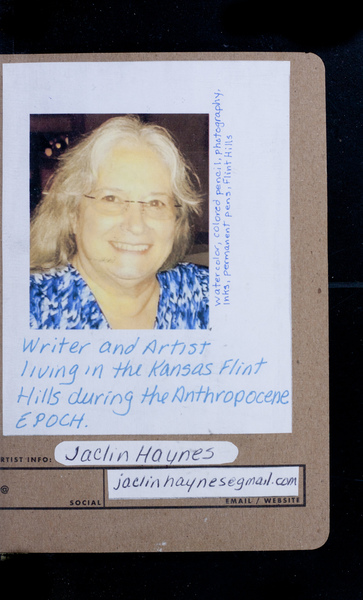 watercolor, colored pencil, photography,
inks, permanent pens, Flint Hills
Writer and Artist
living in the Kansas Flint
Hills during the Anthropocene
EPOCH.
RTIST INFO: Jaclin Haynes
@ jaclinhaynes@gmail.com
SOCIAL EMAIL / WEBSITE